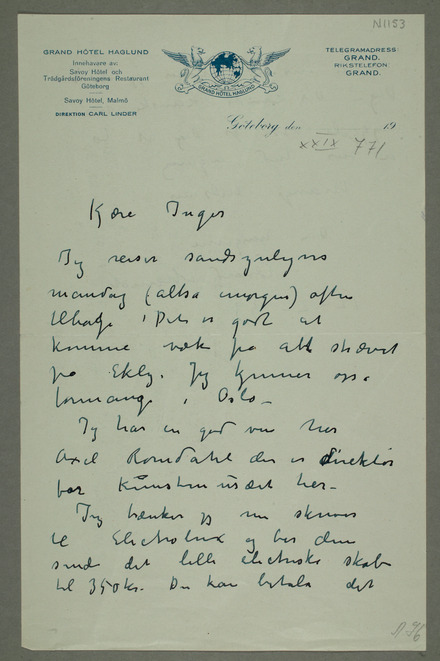 N1153
GRAND HÔTEL HAGLUND
Innehavare av:
Savoy Hôtel och
Trädgårdsföreningens Restaurant
Göteborg
Savoy Hôtel, Malmö
DIREKTION CARL LINDER
GRAND HÔTEL HAGLUND
TELEGRAMADRESS
GRAND.
RIKSTELEFON:
GRAND.
Göteborg den 19
XXIX 771
Kjære Inger
Jeg reiser sandsynligvis
mandag (altså imorgen) efter
tilbage i Det er godt at
komme væk fra alt strævet
på Ekly. Jeg kjenner også
formange i Oslo –
Jeg har en god ven her
Axel Romdahl der er direktør
for Kunstmuséet her –
Jeg tænker jeg nu skriver
til Electrolux og ber dem
sende det lille electriske skab
til 350 kr. Du kan betale det